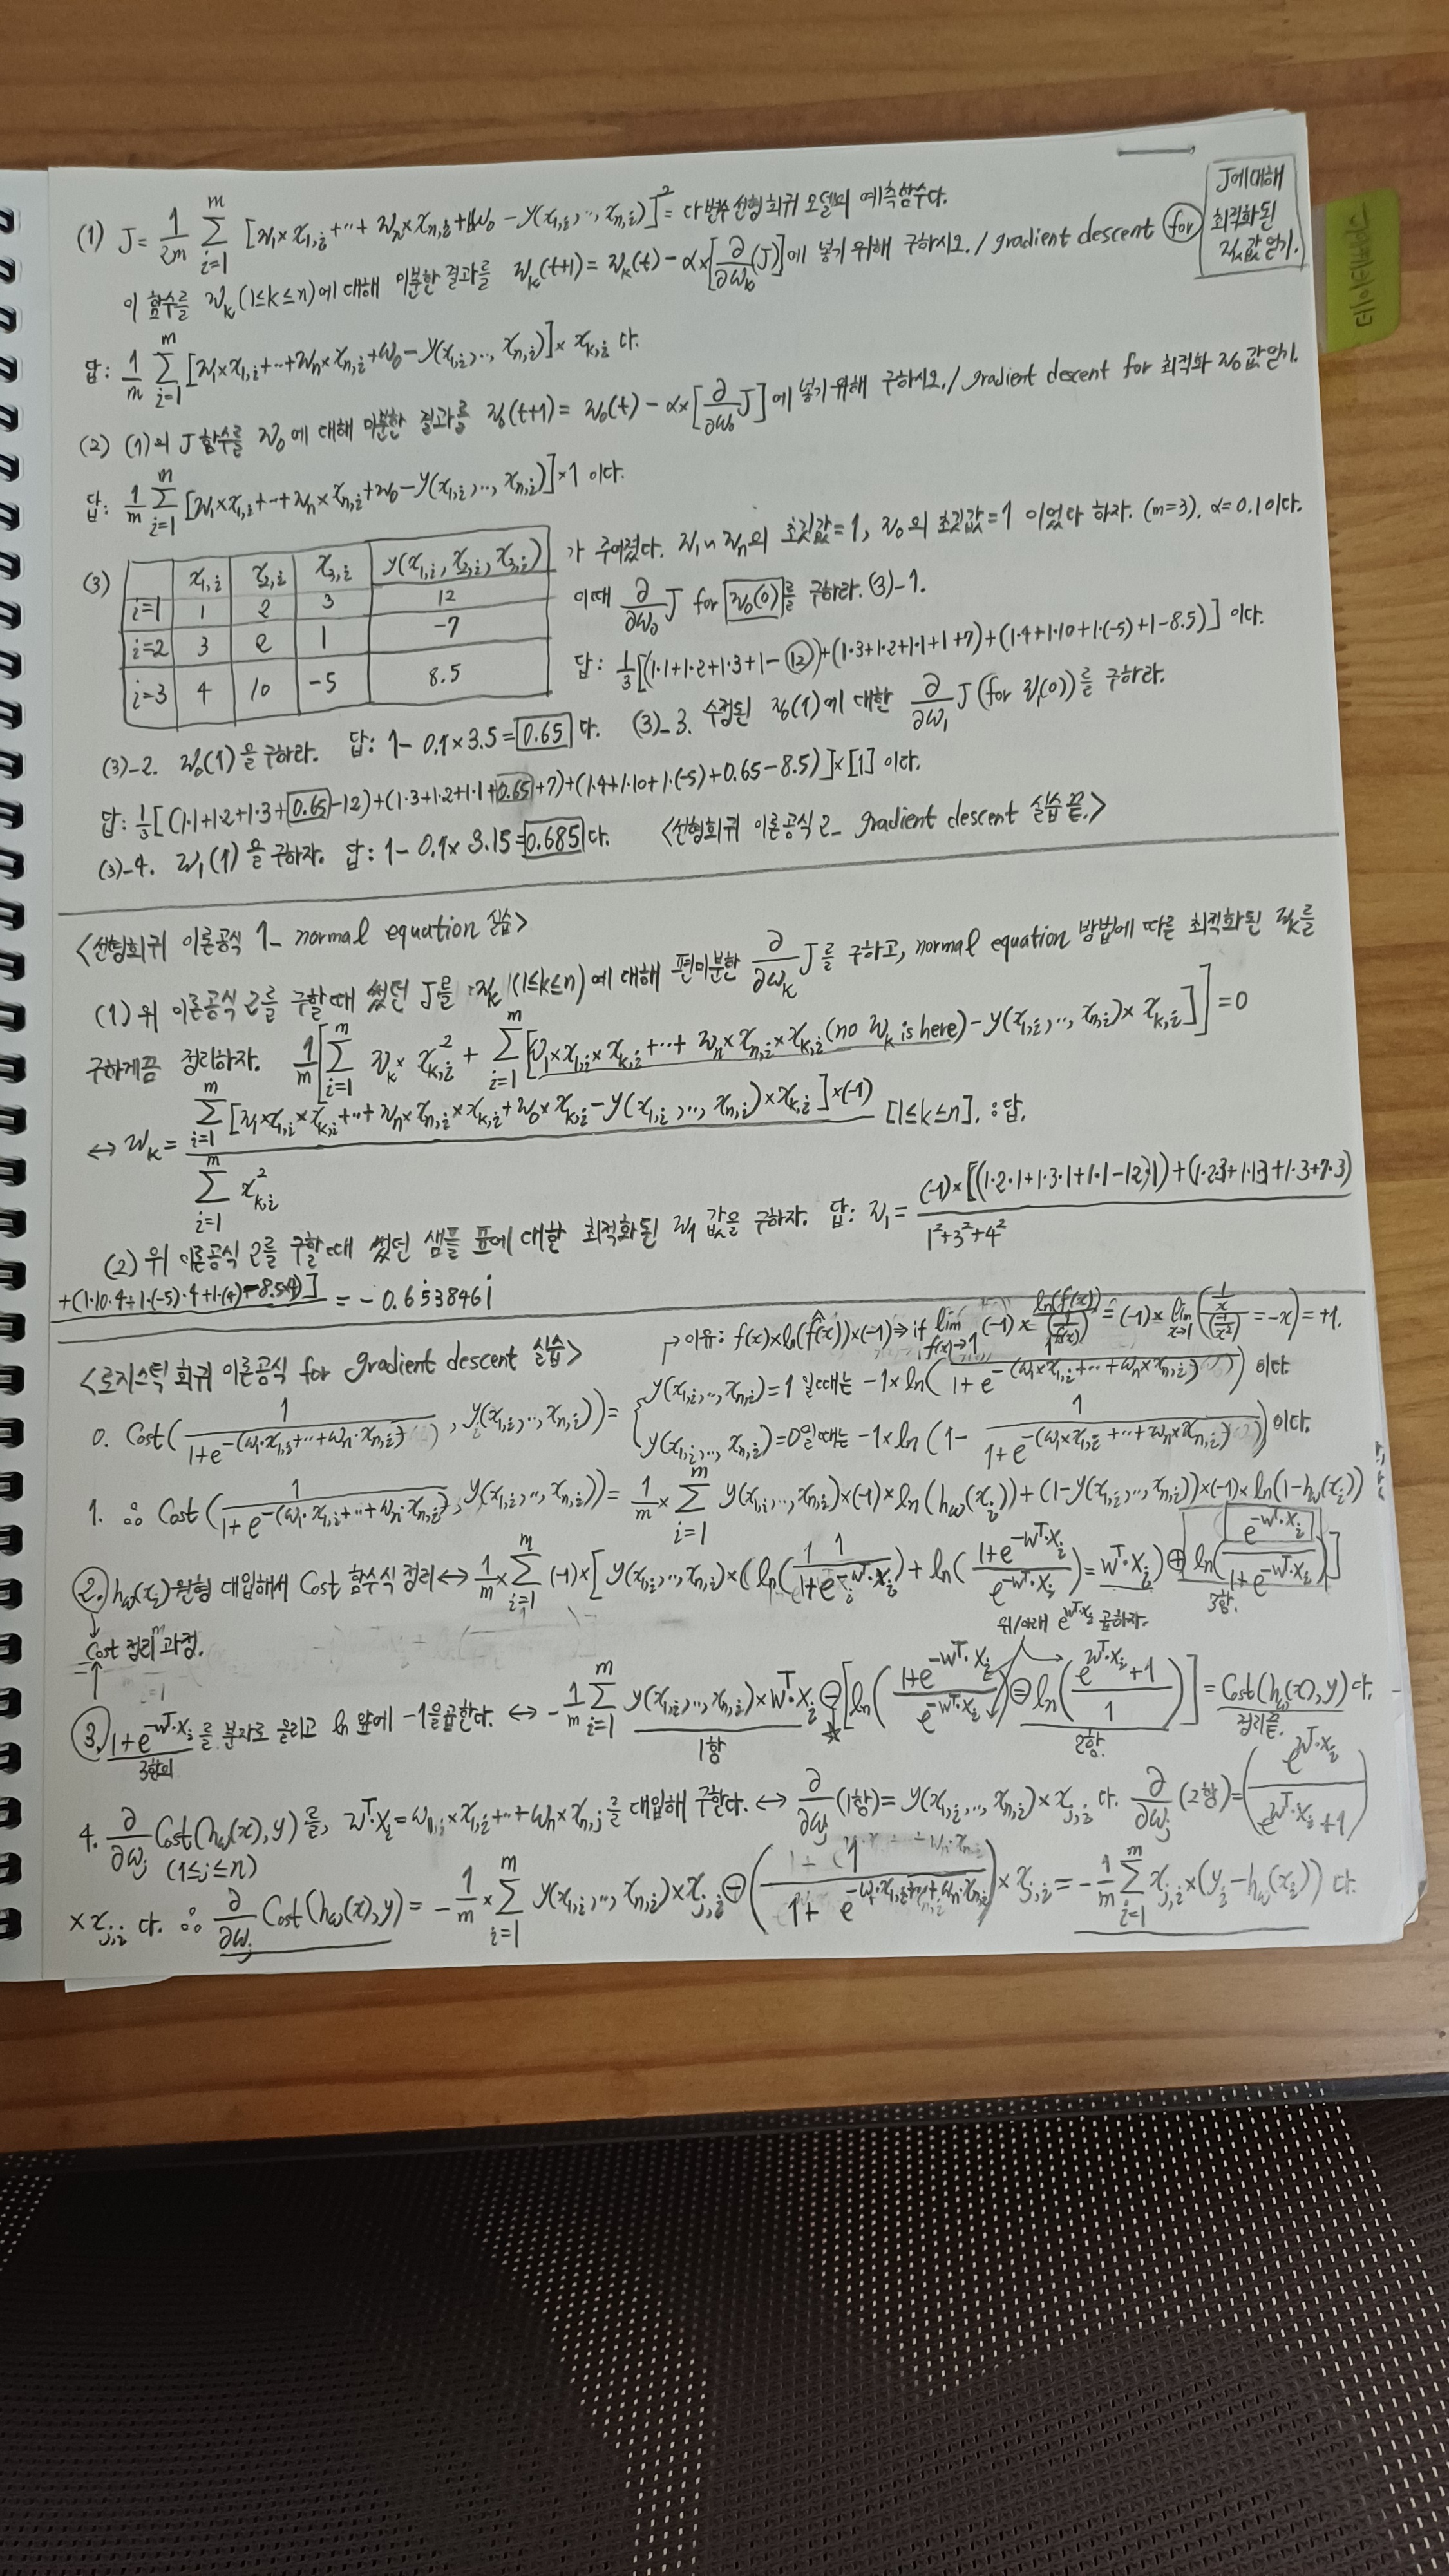 (1) J = 1/2m Σ_{i=1}^{m} [w₁×x_{1,i}+…+wₙ×x_{n,i}+w₀-y(x_{1,i},…,x_{n,i})]² = 다변수 선형회귀 모델의 예측함수다.
이 함수를 w_k (1≤k≤n)에 대해 미분한 결과를 w_k(t+1) = w_k(t) - α×[∂/∂w_k (J)]에 넣기 위해 구하시오. / gradient descent for
J에대해
최적화된
w_k값 얻기.
데이터베이스
답: 1/m Σ_{i=1}^{m} [w₁×x_{1,i}+…+wₙ×x_{n,i}+w₀-y(x_{1,i},…,x_{n,i})]×x_{k,i} 다.
(2) (1)의 J 함수를 w₀에 대해 미분한 결과를 w₀(t+1) = w₀(t) - α×[∂/∂w₀ J]에 넣기 위해 구하시오. / gradient descent for 최적화 w₀값 얻기.
답: 1/m Σ_{i=1}^{m} [w₁×x_{1,i}+…+wₙ×x_{n,i}+w₀-y(x_{1,i},…,x_{n,i})]×1 이다.
(3) x_{1,i} x_{2,i} x_{3,i} y(x_{1,i}, x_{2,i}, x_{3,i})
i=1 1 2 3 12
i=2 3 2 1 -7
i=3 4 10 -5 8.5
가 주어졌다. w₁~wₙ의 초깃값=1, w₀의 초깃값=1 이었다 하자. (m=3). α=0.1이다.
이때 ∂/∂w₀ J for w₀(0)를 구하라. (3)-1.
답: 1/3[(1·1+1·2+1·3+1-12)+(1·3+1·2+1·1+1+7)+(1·4+1·10+1·(-5)+1-8.5)] 이다.
(3)-2. w₀(1)을 구하라. 답: 1-0.1×3.5=0.65 다. (3)-3. 수정된 w₀(1)에 대한 ∂/∂w₁ J (for w₁(0))를 구하라.
답: 1/3[(1·1+1·2+1·3+0.65-12)+(1·3+1·2+1·1+0.65+7)+(1·4+1·10+1·(-5)+0.65-8.5)]×[1] 이다.
(3)-4. w₁(1)을 구하자. 답: 1-0.1×3.15=0.685다. <선형회귀 이론공식2_ gradient descent 실습 끝.>
<선형회귀 이론공식 1_ normal equation 실습>
(1) 위 이론공식 2를 구할때 썼던 J를 w_k (1≤k≤n)에 대해 편미분한 ∂/∂w_k J를 구하고, normal equation 방법에 따른 최적화된 w_k를
구하게끔 정리하자. 1/m[Σ_{i=1}^{m} w_k×x_{k,i}² + Σ_{i=1}^{m}[w₁×x_{1,i}×x_{k,i}+…+wₙ×x_{n,i}×x_{k,i}(no w_k is here)-y(x_{1,i},…,x_{n,i})×x_{k,i}]]=0
↔ w_k = Σ_{i=1}^{m}[w₁×x_{1,i}×x_{k,i}+…+wₙ×x_{n,i}×x_{k,i}+w₀×x_{k,i}-y(x_{1,i},…,x_{n,i})×x_{k,i}]×(-1) / Σ_{i=1}^{m} x_{k,i}² [1≤k≤n]. :답.
(2) 위 이론공식 2를 구할때 썼던 샘플 표에 대한 최적화된 w₁값을 구하자. 답: w₁ = (-1)×[((1·2·1+1·3·1+1·1-12·1)+(1·2·3+1·1·3+1·3+7·3) / 1²+3²+4²
+(1·10·4+1·(-5)·4+1·(4)-8.5·4)] = -0.6538461
<로지스틱 회귀 이론공식 for gradient descent 실습>
↱이유: f(x)×ln(f̂(x))×(-1) ⇒ if lim_{f(x)→1} (-1)× ln(f(x))/(1/f(x)) = (-1)×lim_{x→1}((1/x)/(1/x²) = -x) = +1.
0. Cost(1/(1+e^{-(w₁·x_{1,i}+…+wₙ·x_{n,i})}), y(x_{1,i},…,x_{n,i})) = { y(x_{1,i},…,x_{n,i})=1 일때는 -1×ln(1/(1+e^{-(w₁×x_{1,i}+…+wₙ×x_{n,i})})) 이다.
y(x_{1,i},…,x_{n,i})=0일때는 -1×ln(1-1/(1+e^{-(w₁×x_{1,i}+…+wₙ×x_{n,i})})) 이다.
1. ∴ Cost(1/(1+e^{-(w₁·x_{1,i}+…+wₙ·x_{n,i})}), y(x_{1,i},…,x_{n,i})) = 1/m×Σ_{i=1}^{m} y(x_{1,i},…,x_{n,i})×(-1)×ln(h_w(x_i))+(1-y(x_{1,i},…,x_{n,i}))×(-1)×ln(1-h_w(x_i))
2. h_w(x_i) 원형 대입해서 Cost 함수식 정리 ↔ 1/m×Σ_{i=1}^{m} (-1)×[y(x_{1,i},…,x_{n,i})×(ln(1/(1+e^{-w^T·x_i}))+ln((1+e^{-w^T·x_i})/e^{-w^T·x_i})=w^T·x_i)⊕ln(e^{-w^T·x_i}/(1+e^{-w^T·x_i}))]
3항.
Cost 정리 과정.
위/아래 e^{w^T·x_i} 곱하자.
3. 1+e^{-w^T·x_i}를 분자로 올리고 ln 앞에 -1을 곱한다. ↔ -1/m Σ_{i=1}^{m} y(x_{1,i},…,x_{n,i})×w^T·x_i ⊖[ln((1+e^{-w^T·x_i})/e^{-w^T·x_i})⊖ln((e^{w^T·x_i}+1)/1)] = Cost(h_w(x),y)다.
3항의 1항 2항. 정리끝.
4. ∂/∂w_j Cost(h_w(x),y)를, w^T·x_i=w₁×x_{1,i}+…+wₙ×x_{n,i}를 대입해 구한다. ↔ ∂/∂w_j (1항)=y(x_{1,i},…,x_{n,i})×x_{j,i} 다. ∂/∂w_j (2항)=(e^{w^T·x_i}/(e^{w^T·x_i}+1))
(1≤j≤n)
×x_{j,i} 다. ∴ ∂/∂w_j Cost(h_w(x),y) = -1/m×Σ_{i=1}^{m} y(x_{1,i},…,x_{n,i})×x_{j,i}⊖(1/(1+e^{-w₁·x_{1,i}+…+wₙ·x_{n,i}}))×x_{j,i} = -1/m Σ_{i=1}^{m} x_{j,i}×(y_i-h_w(x_i)) 다.